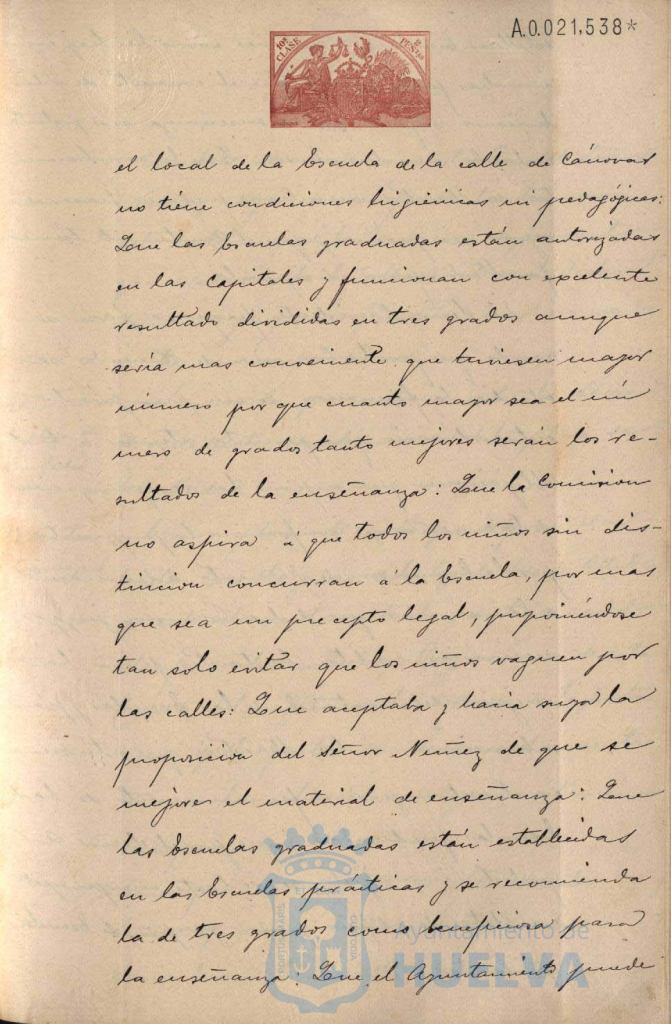 A.0.021,538*
10ª CLASE
PESETAS
el local de la Escuela de la calle de Cánovas
no tiene condiciones higiénicas ni pedagógicas:
Que las Escuelas graduadas están autorizadas
en las Capitales y funcionan con excelente
resultado divididas en tres grados aunque
sería mas conveniente que tuviesen mayor
número por que cuanto mayor sea el nú
mero de grados tanto mejores serán los re-
sultados de la enseñanza: Que la Comision
no aspira á que todos los niños sin dis-
tincion concurran á la Escuela, por mas
que sea un precepto legal, proponiéndose
tan solo evitar que los niños vaguen por
las calles: Que aceptaba y hacia suya la
proposicion del Señor Nuñez de que se
mejore el material de enseñanza: Que
las Escuelas graduadas están establecidas
en las Escuelas prácticas y se recomienda
la de tres grados como beneficiosa para
la enseñanza: Que el Ayuntamiento puede
Ayuntamiento de
HUELVA